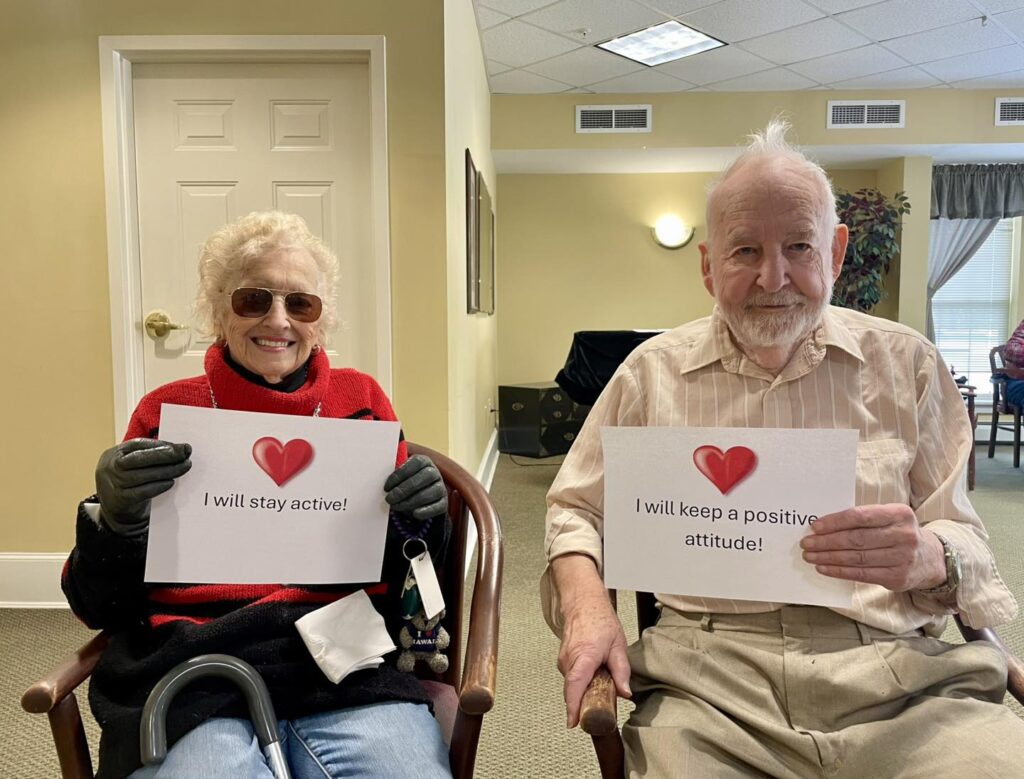 I will stay active!
I will keep a positive
attitude!
I
HAWAII